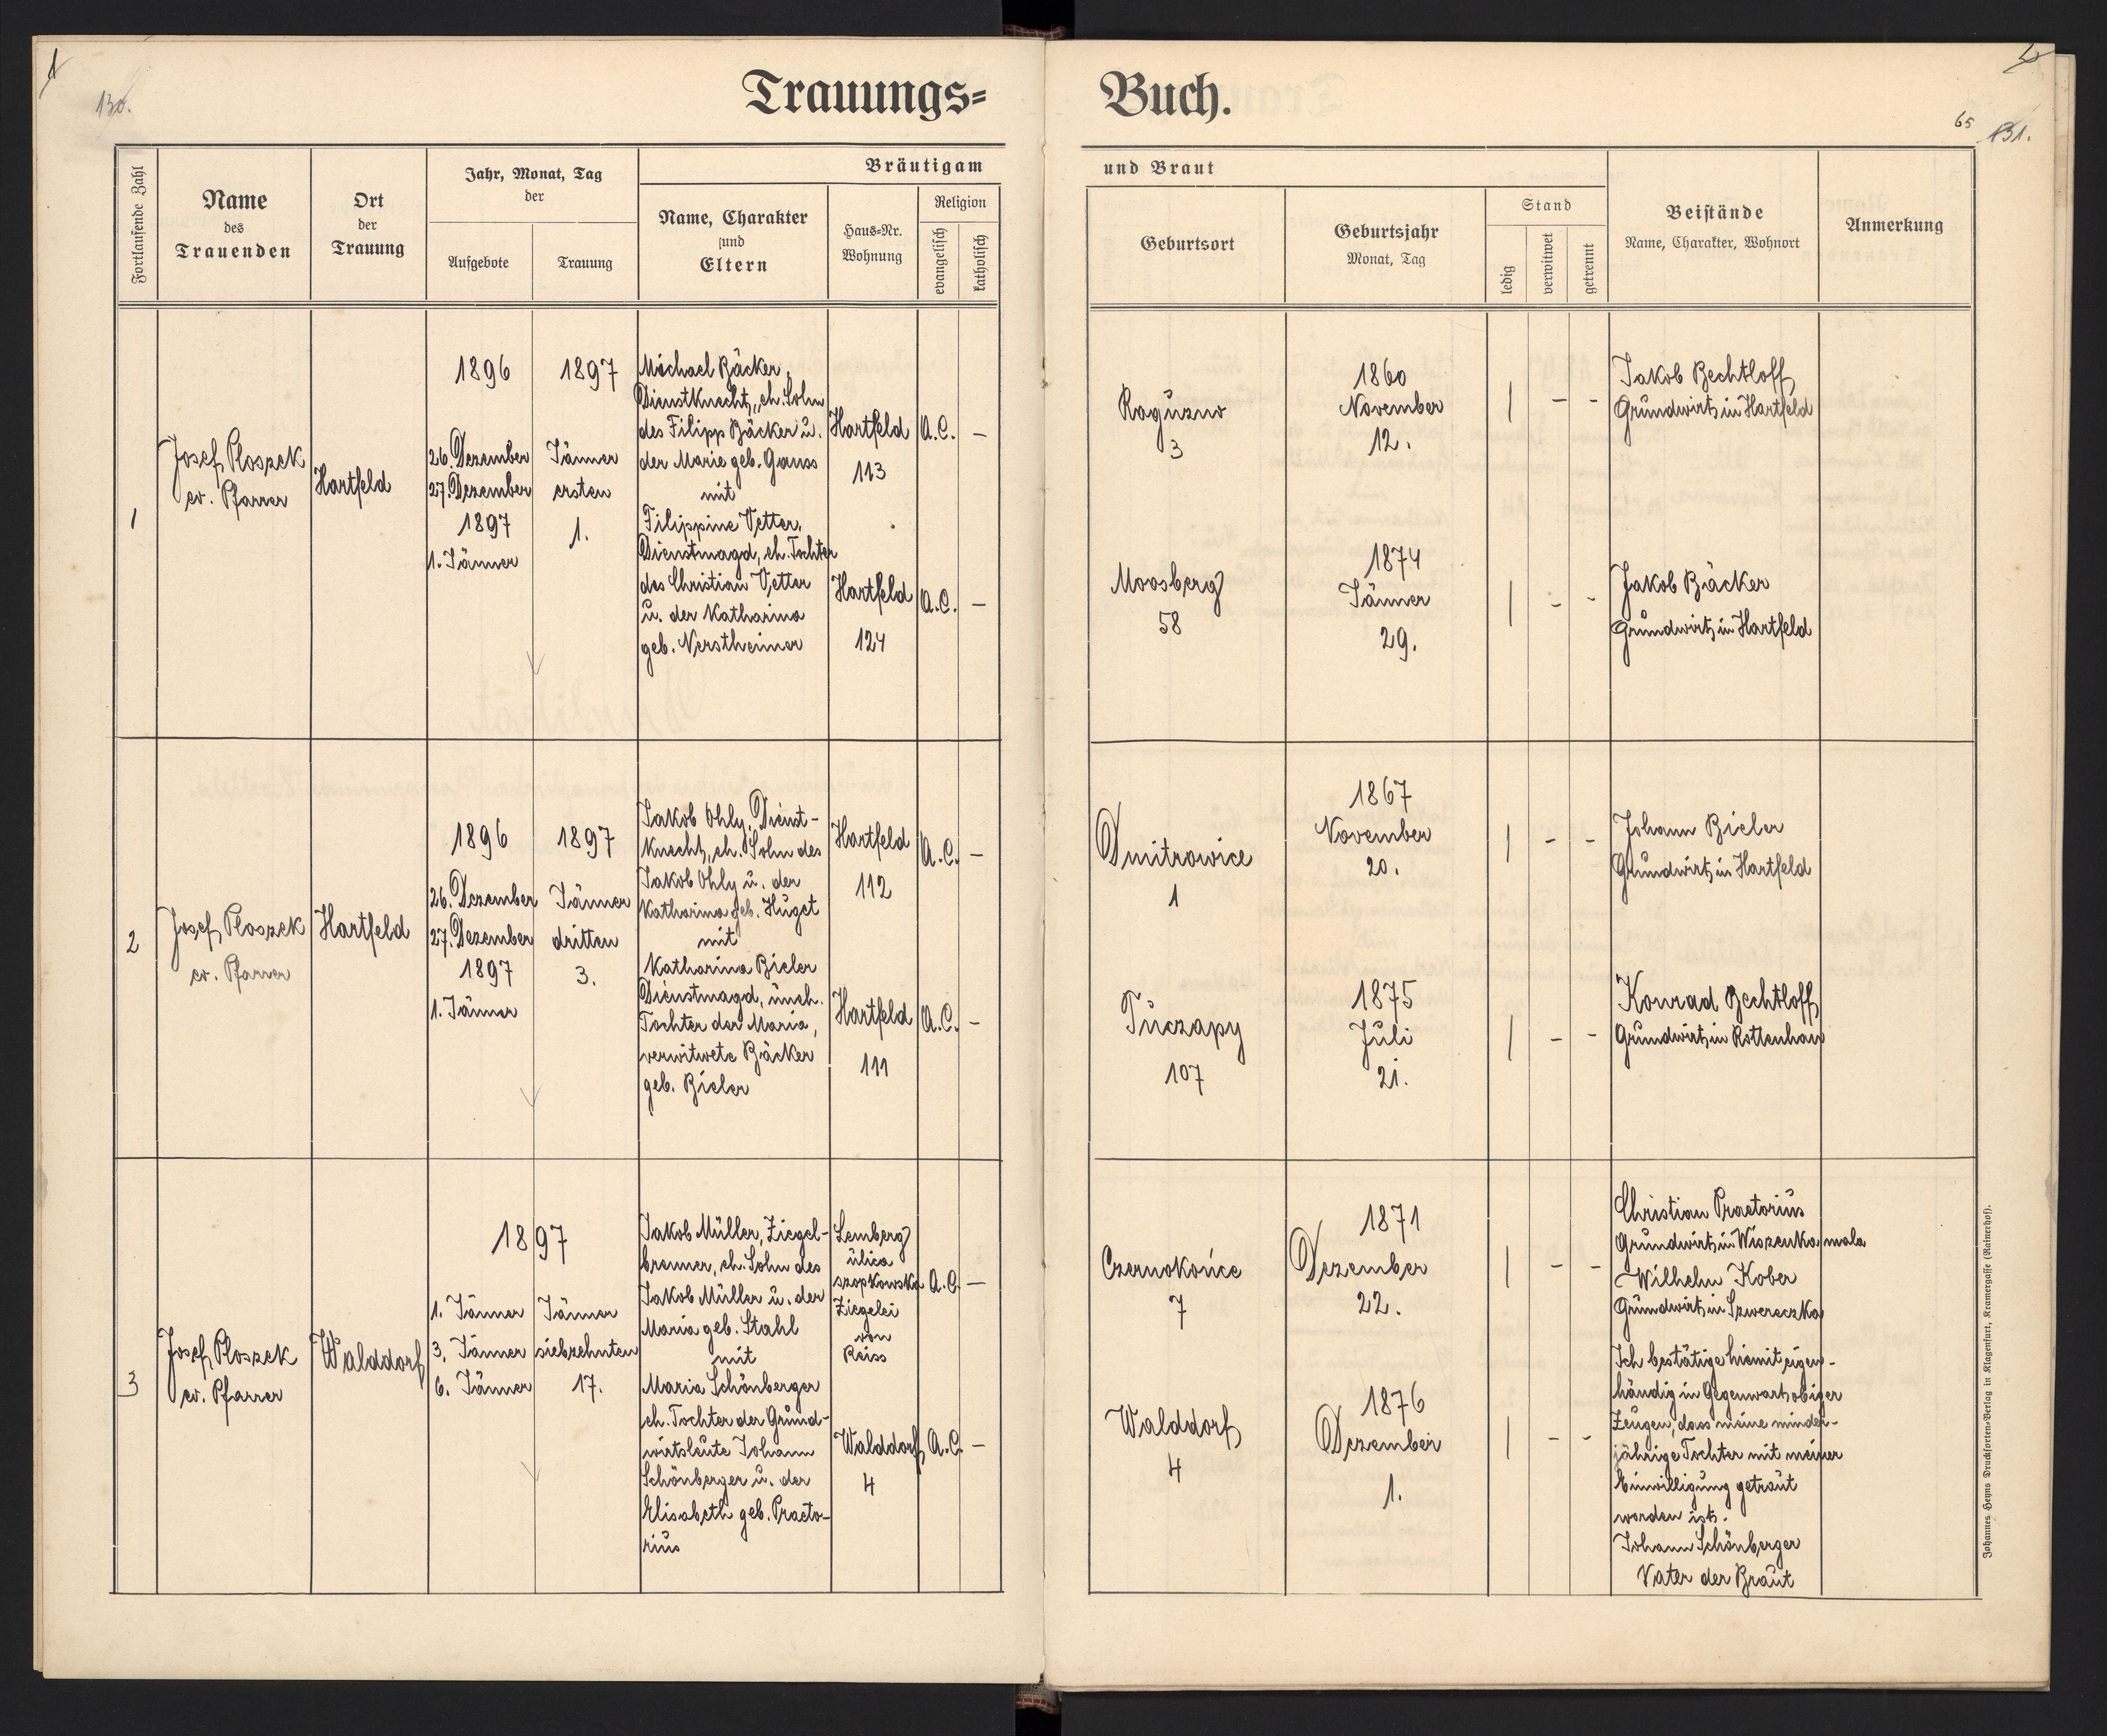 1
130.
Trauungs=
Fortlaufende Zahl
Name
des
Trauenden
Ort
der
Trauung
Jahr, Monat, Tag
der
Aufgebote
Trauung
Bräutigam
Name, Charakter
und
Eltern
Haus=Nr.
Wohnung
Religion
evangelisch
katholisch
1
Josef Ploszek
ev. Pfarrer
Hartfeld
1896
26. Dezember
27. Dezember
1897
1. Jänner
1897
Jänner
ersten
1.
Michael Bäcker,
Dienstknecht, eh. Sohn
des Filipp Bäcker u.
der Marie geb. Gauss
mit
Filippine Vetter,
Dienstmagd, eh. Tochter
des Christian Vetter
u. der Katharina
geb. Nerstheimer
Hartfeld
113
Hartfeld
124
A.C. –
A.C. –
2
Josef Ploszek
ev. Pfarrer
Hartfeld
1896
26. Dezember
27. Dezember
1897
1. Jänner
1897
Jänner
dritten
3.
Jakob Ohly, Dienst-
knecht, eh. Sohn des
Jakob Ohly u. der
Katharina geb. Huget
mit
Katharina Bieler
Dienstmagd, uneh.
Tochter der Maria,
verwitwete Bäcker
geb. Bieler
Hartfeld
112
Hartfeld
111
A.C. –
A.C. –
3
Josef Ploszek
ev. Pfarrer
Walddorf
1897
1. Jänner
3. Jänner
6. Jänner
Jänner
siebzehnten
17.
Jakob Müller, Ziegel-
brenner, eh. Sohn des
Jakob Müller u. der
Maria geb. Stahl
mit
Maria Schönberger
eh. Tochter der Grund-
wirtsleute Johann
Schönberger u. der
Elisabeth geb. Praeto-
rius
Lemberg
ulica
szopkowska
Ziegelei
von
Reiss
Walddorf
4
A.C. –
A.C. –
2
65
131.
Buch.
und Braut
Geburtsort
Geburtsjahr
Monat, Tag
Stand
ledig
verwitwet
getrennt
Beistände
Name, Charakter, Wohnort
Anmerkung
Roguzno
3
1860
November
12.
| – –
Jakob Bechtloff
Grundwirt in Hartfeld
Moosberg
58
1874
Jänner
29.
| – –
Jakob Bäcker
Grundwirt in Hartfeld
Dmitrowice
1
1867
November
20.
| – –
Johann Bieler
Grundwirt in Hartfeld
Tuczapy
107
1875
Juli
21.
| – –
Konrad Bechtloff
Grundwirt in Rottenhan
Czernokońce
7
1871
Dezember
22.
| – –
Christian Praetorius
Grundwirt in Wiszenka mala
Wilhelm Kober
Grundwirt in Szwereczka
Walddorf
4
1876
Dezember
1.
| – –
Ich bestätige hiemit eigen-
händig in Gegenwart obiger
Zeugen, dass meine minder-
jährige Tochter mit meiner
Einwilligung getraut
worden ist.
Johann Schönberger
Vater der Braut
Johannes Heyns Drucksorten=Verlag in Klagenfurt, Kramergasse (Rainerhof).